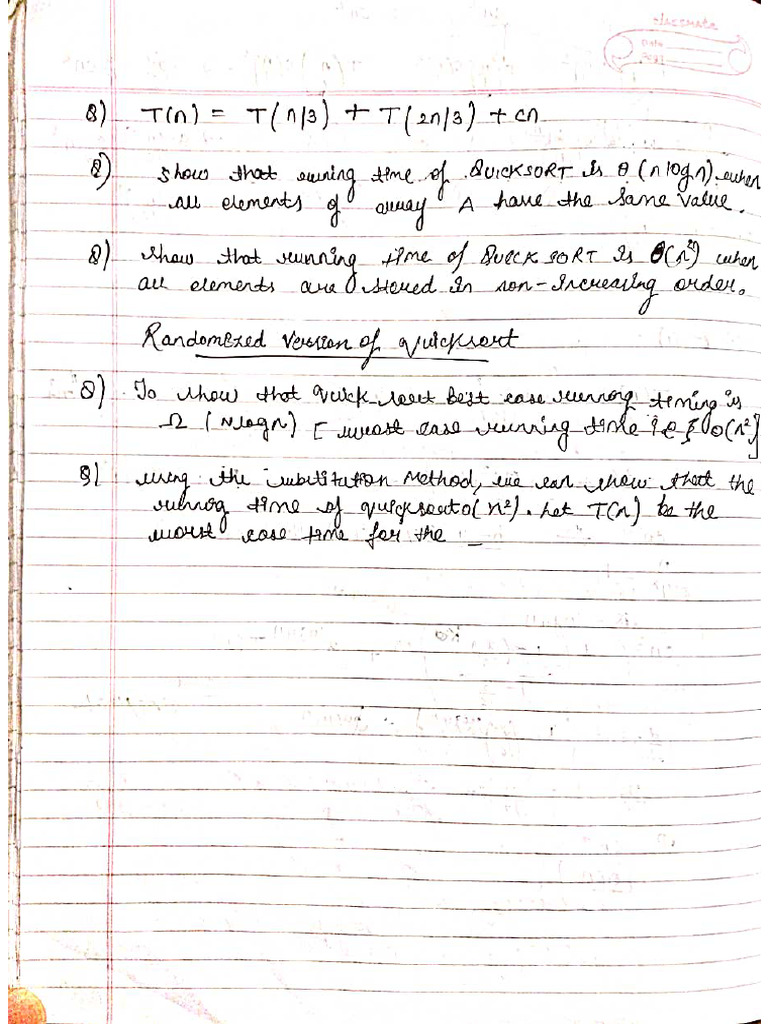 classmate
Date
Page
Q) T(n) = T(n/3) + T(2n/3) + cn
Q) Show that running time of QUICKSORT is θ (n logn). when
all elements of array A have the same value.
Q) Show that running time of QUICKSORT is θ(n²) when
all elements are stored in non-increasing order.
Randomized Version of quicksort
Q) To show that quick sort best case running timing is
Ω (nlogn) [ worst case running time i.e O(n²]
Q) using the substitution Method, we can show that the
running time of quicksort o(n²). Let T(n) be the
worst case time for the _